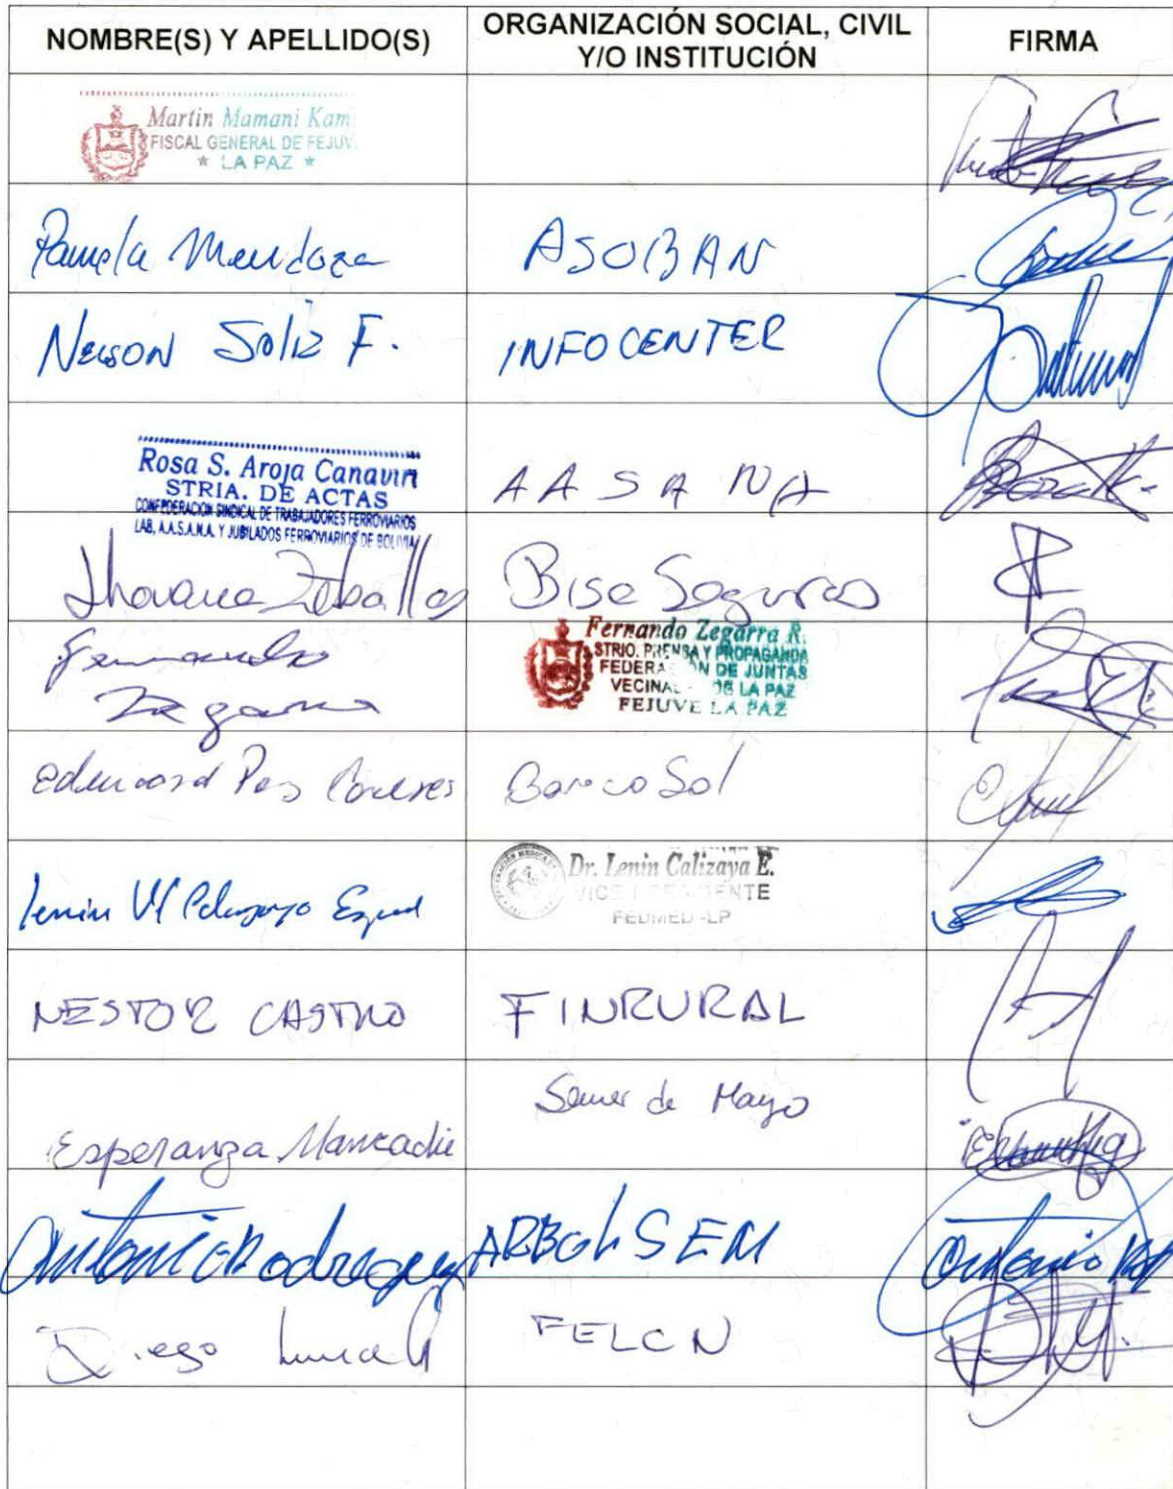 NOMBRE(S) Y APELLIDO(S)
ORGANIZACIÓN SOCIAL, CIVIL
Y/O INSTITUCIÓN
FIRMA
Martin Mamani Kam
FISCAL GENERAL DE FEJUV
* LA PAZ *
Pamela Mendoza
ASOBAN
Nelson Soliz F.
INFOCENTER
Rosa S. Aroja Canaviri
STRIA. DE ACTAS
CONFEDERACIÓN SINDICAL DE TRABAJADORES FERROVIARIOS
LAB, A.A.S.A.N.A. Y JUBILADOS FERROVIARIOS DE BOLIVIA
AASANA
Jhovana Zeballos
Bisa Seguros
Fernando
Zegarra
Fernando Zegarra R.
STRIO. PRENSA Y PROPAGANDA
FEDERA N DE JUNTAS
VECINAL DE LA PAZ
FEJUVE LA PAZ
Edward
BancoSol
Lenin
Dr. Lenin Calizaya E.
VICEPRESIDENTE
FEDMED-LP
NESTOR CASTRO
FINRURAL
Esperanza
de Mayo
Antonio Rodriguez
ARBOLSEM
Antonio
Diego
FELCN